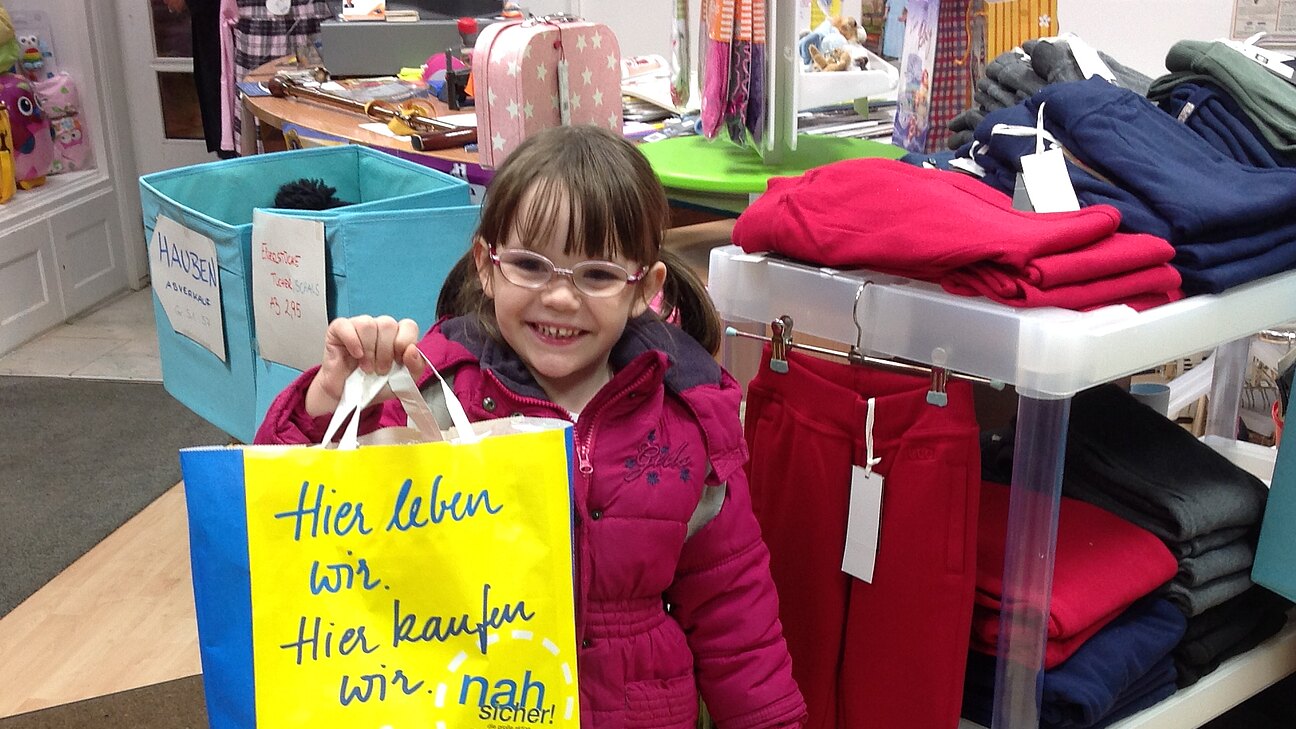 HAUBEN
ABVERKAUF
EINZELSTÜCKE
TÜCHER SCHALS
AB 2,95
Hier leben
wir.
Hier kaufen
wir.
nah
sicher!